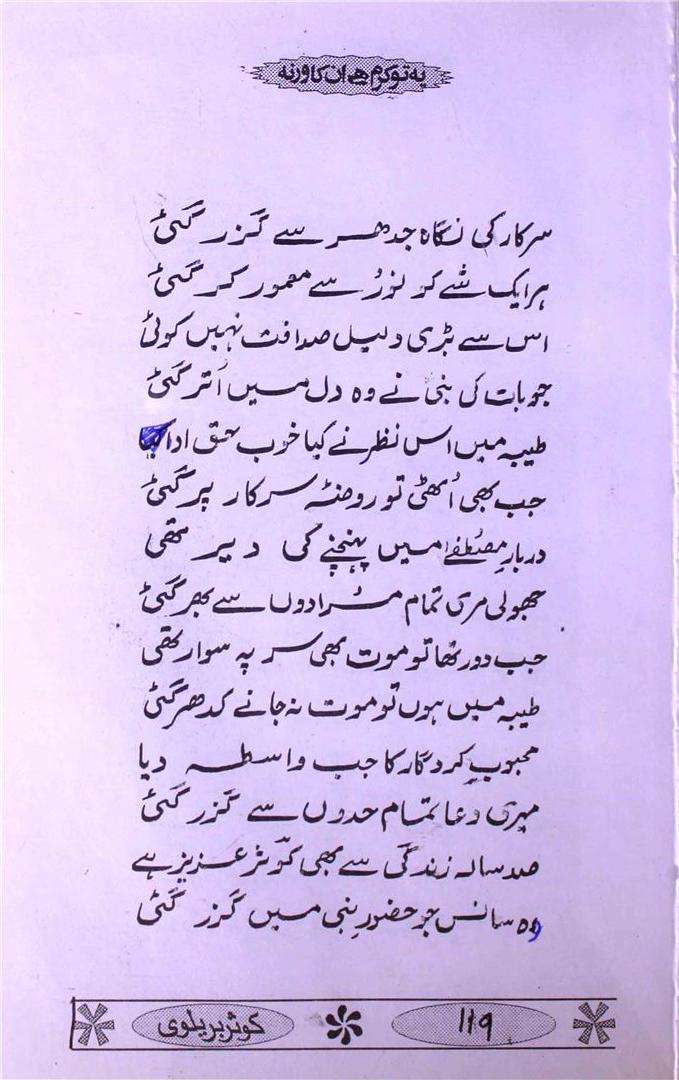 یہ تو کرم ہے ان کا ورنہ
سرکار کی نگاہ جدھر سے گزر گئی
ہر ایک شے کو نورُ سے معمور کر گئی
اس سے بڑی دلیل صداقت نہیں کوئی
جو بات کی نبی نے وہ دل میں اُتر گئی
طیبہ میں اس نظر نے کیا خوب حق ادا کیا
جب بھی اُٹھی تو روضئہ سرکار پر گئی
دربارِ مصطفےٰ میں پہنچنے کی دیر تھی
جھولی مری تمام مُرادوں سے بھر گئی
جب دور تھا تو موت بھی سر پہ سوار تھی
طیبہ میں ہوں تو موت نہ جانے کدھر گئی
محبوبِ کردگار کا جب واسطہ دیا
میری دعا تمام حدوں سے گزر گئی
صد سالہ زندگی سے بھی کوثر عزیز ہے
وہ سانس جو حضورِ نبی میں گزر گئی
۱۱۹
کوثر بریلوی